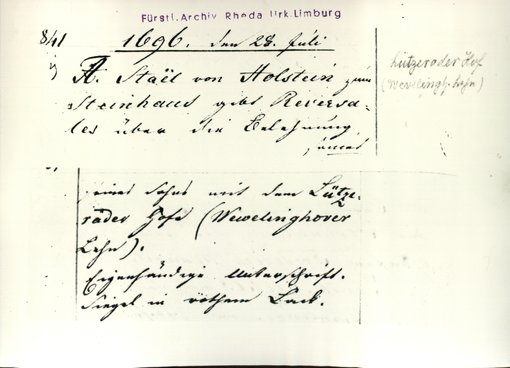 Fürstl. Archiv Rheda Urk. Limburg
1696. den 28. Juli
Staël von Holstein zum
Steinhaus gibt Reversa-
les über die Belehnung
seines Sohns mit dem Lütze-
rader Hofe (Wewelinghover
Lehn).
Eigenhändige Unterschrift.
Siegel in rothem Lack.
Lützerader Hof